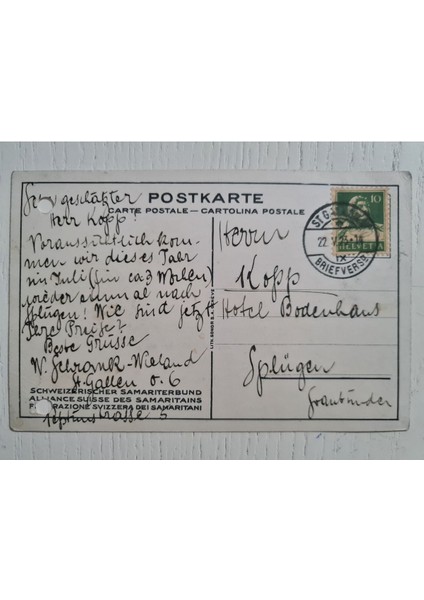 POSTKARTE
CARTE POSTALE — CARTOLINA POSTALE
Sehr geschätzter
Herr Kopp!
Voraussichtlich kom-
men wir dieses Jahr
im Juli (für ca 3 Wochen)
wieder einmal nach
Splügen! Wie sind jetzt
Ihre Preise?
Beste Grüsse
W. Schrank-Wieland
St. Gallen O. 6
Neptunstrasse 5
SCHWEIZERISCHER SAMARITERBUND
ALLIANCE SUISSE DES SAMARITAINS
FEDERAZIONE SVIZZERA DEI SAMARITANI
10
HELVETIA
22. V.
BRIEFVERS
Herrn
Kopp
Hotel Bodenhaus
Splügen
Graubünden